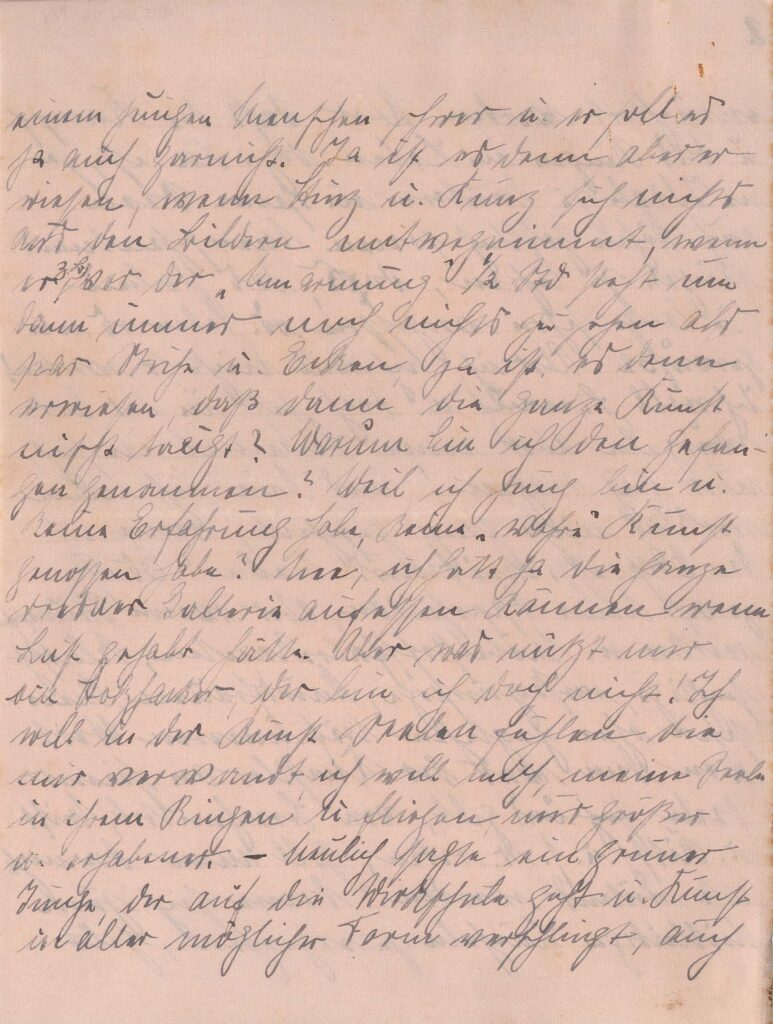 einem jungen Menschen schwer u. er soll es
ja auch garnicht. Ja ist es denn aber er
wiesen, wenn Hinz u. Kunz sich nichts
aus den Bildern mitwegnimmt, wenn
er vor der „Umarmung" 1/2 Std steht um
dann immer noch nichts zu sehen als
paar Striche u. Ecken, ja ist es denn
erwiesen, daß dann die ganze Kunst
nicht taugt? Warum bin ich den gefan-
gen genommen? Weil ich jung bin u.
keine Erfahrung habe, keine „wahre" Kunst
genossen habe? Nee, ich hätt ja die ganze
Gallerie aufessen können wenn
Lust gehabt hätte. Aber was nützt mir
ein Holzhacker, der bin ich doch nicht! Ich
will in der Kunst Seelen fühlen die
mir verwandt, ich will mich, meine Seele
in ihrem Ringen u fliegen, nur größer
u. erhabener. – Neulich sagte ein grüner
Junge, der auf die Werkschule geht u. Kunst
in aller möglicher Form verschlingt, auch